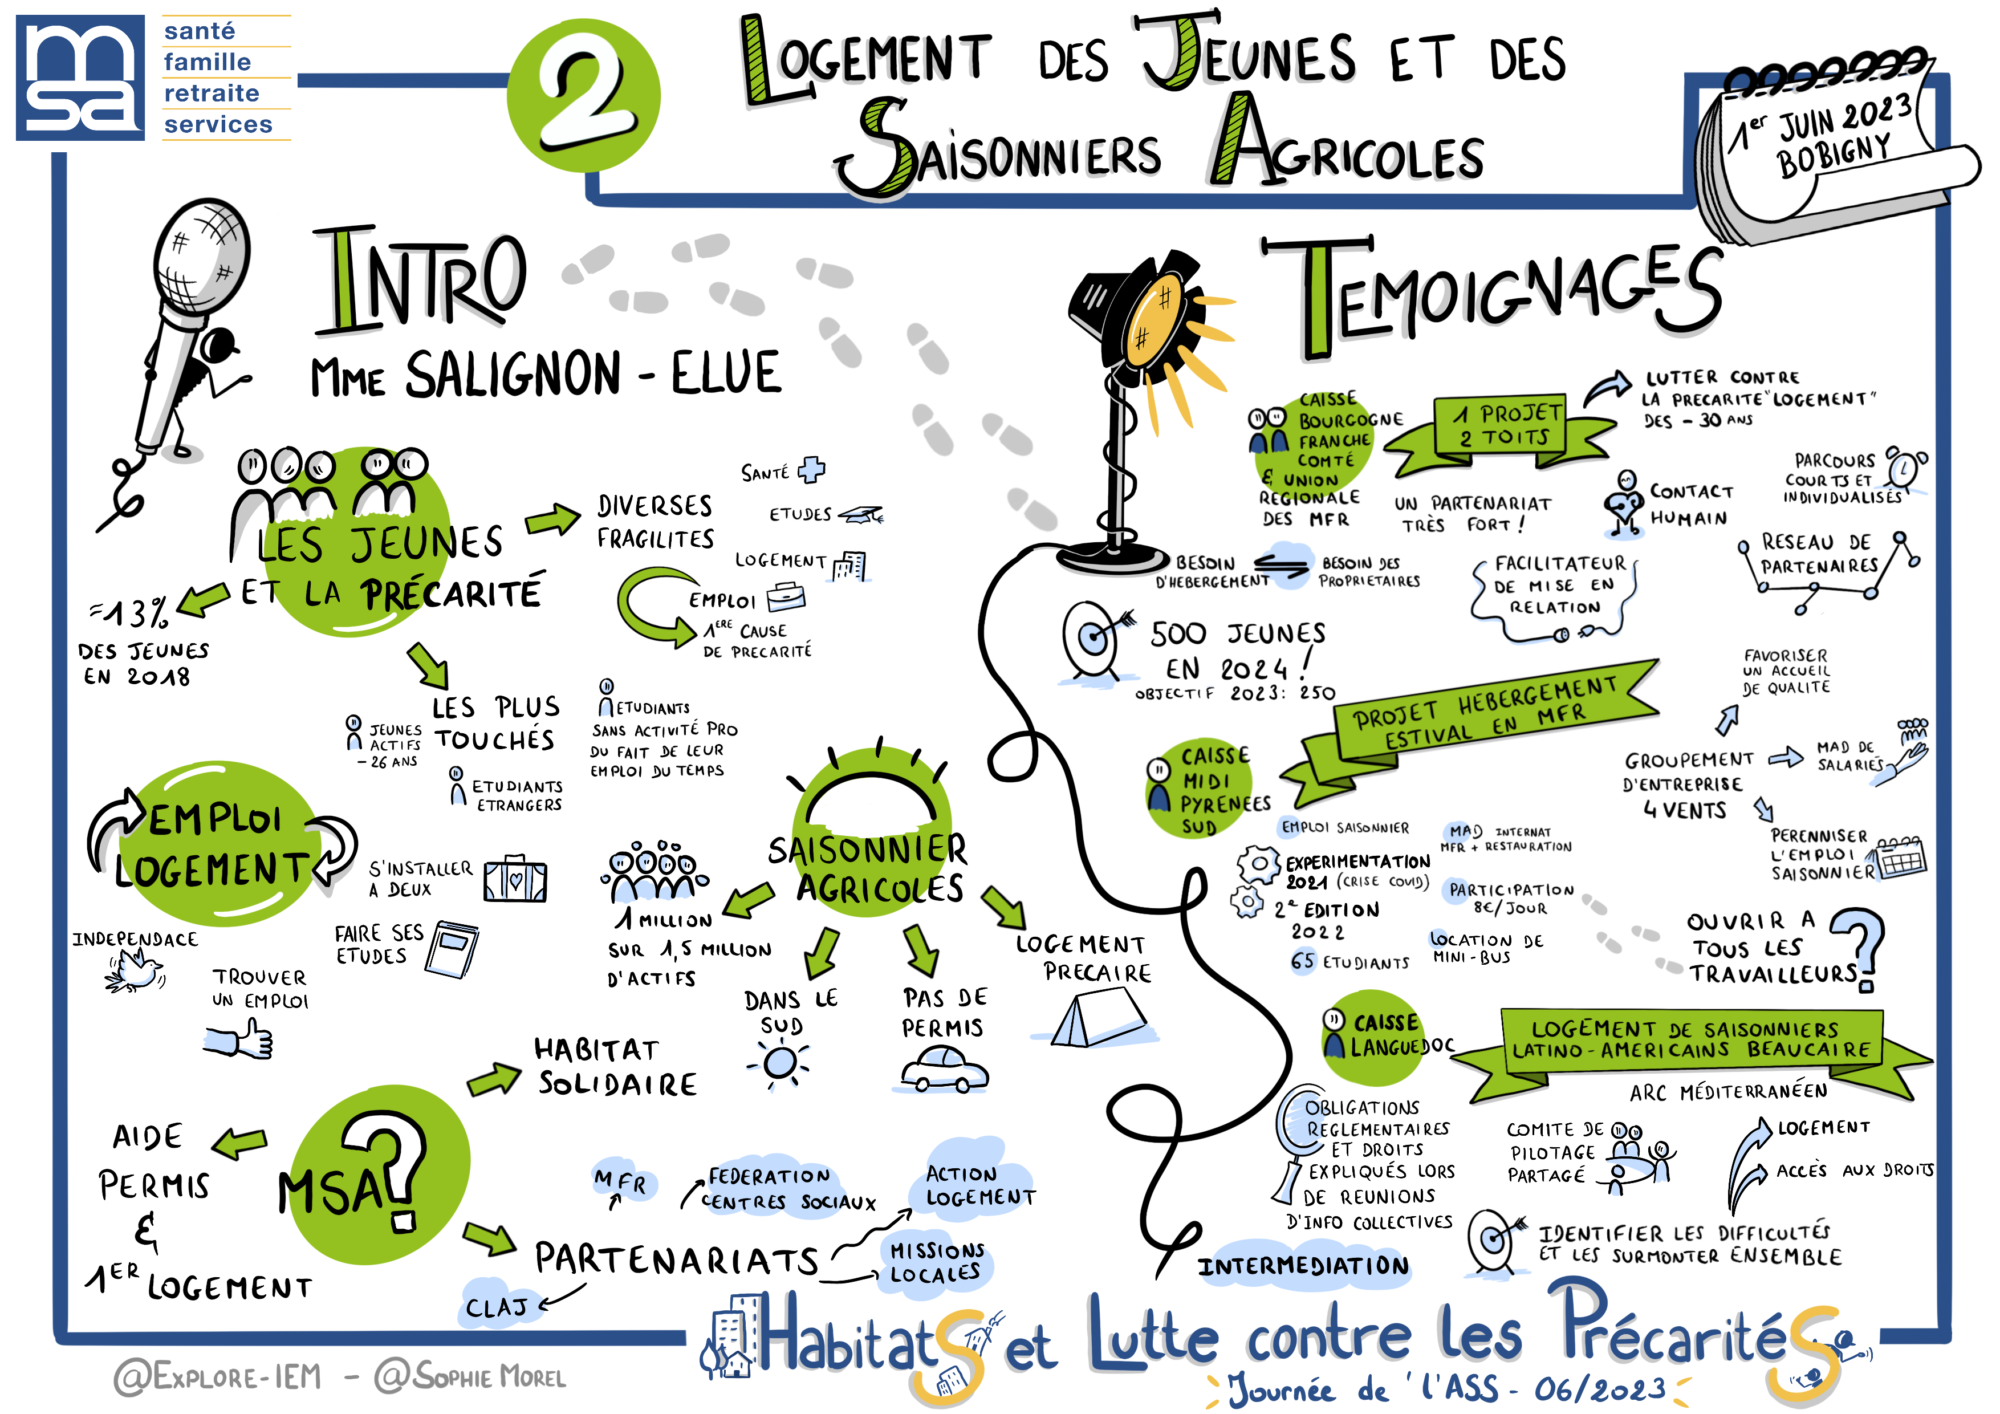 msa
santé
famille
retraite
services
2
LOGEMENT DES JEUNES ET DES
SAISONNIERS AGRICOLES
1er JUIN 2023
BOBIGNY
INTRO
MME SALIGNON - ELUE
LES JEUNES
ET LA PRÉCARITÉ
≈13%
DES JEUNES
EN 2018
DIVERSES
FRAGILITES
SANTÉ
ETUDES
LOGEMENT
EMPLOI
1ERE CAUSE
DE PRECARITÉ
LES PLUS
TOUCHÉS
JEUNES
ACTIFS
- 26 ANS
ETUDIANTS
ETRANGERS
ETUDIANTS
SANS ACTIVITÉ PRO
DU FAIT DE LEUR
EMPLOI DU TEMPS
EMPLOI
LOGEMENT
S'INSTALLER
A DEUX
INDEPENDACE
FAIRE SES
ETUDES
TROUVER
UN EMPLOI
SAISONNIER
AGRICOLES
1 MILLION
SUR 1,5 MILLION
D'ACTIFS
DANS LE
SUD
PAS DE
PERMIS
LOGEMENT
PRECAIRE
MSA?
HABITAT
SOLIDAIRE
AIDE
PERMIS
&
1ER LOGEMENT
PARTENARIATS
MFR
FEDERATION
CENTRES SOCIAUX
ACTION
LOGEMENT
MISSIONS
LOCALES
CLAJ
TEMOIGNAGES
CAISSE
BOURGOGNE
FRANCHE
COMTÉ
& UNION
REGIONALE
DES MFR
1 PROJET
2 TOITS
LUTTER CONTRE
LA PRECARITE "LOGEMENT"
DES - 30 ANS
UN PARTENARIAT
TRÈS FORT !
CONTACT
HUMAIN
PARCOURS
COURTS ET
INDIVIDUALISÉS
BESOIN
D'HEBERGEMENT
BESOIN DES
PROPRIETAIRES
FACILITATEUR
DE MISE EN
RELATION
RESEAU DE
PARTENAIRES
500 JEUNES
EN 2024 !
OBJECTIF 2023: 250
CAISSE
MIDI
PYRENEES
SUD
PROJET HEBERGEMENT
ESTIVAL EN MFR
FAVORISER
UN ACCUEIL
DE QUALITÉ
GROUPEMENT
D'ENTREPRISE
4 VENTS
MAD DE
SALARIÉS
PERENNISER
L'EMPLOI
SAISONNIER
EMPLOI SAISONNIER
EXPERIMENTATION
2021 (CRISE COVID)
2e EDITION
2022
65 ETUDIANTS
MAD INTERNAT
MFR + RESTAURATION
PARTICIPATION
8€/JOUR
LOCATION DE
MINI-BUS
OUVRIR A
TOUS LES
TRAVAILLEURS?
CAISSE
LANGUEDOC
LOGEMENT DE SAISONNIERS
LATINO-AMERICAINS BEAUCAIRE
ARC MÉDITERRANÉEN
OBLIGATIONS
REGLEMENTAIRES
ET DROITS
EXPLIQUÉS LORS
DE REUNIONS
D'INFO COLLECTIVES
COMITE DE
PILOTAGE
PARTAGÉ
LOGEMENT
ACCÈS AUX DROITS
IDENTIFIER LES DIFFICULTÉS
ET LES SURMONTER ENSEMBLE
INTERMEDIATION
HabitatS et Lutte contre les PrécaritéS
Journée de l'ASS - 06/2023
@EXPLORE-IEM - @SOPHIE MOREL